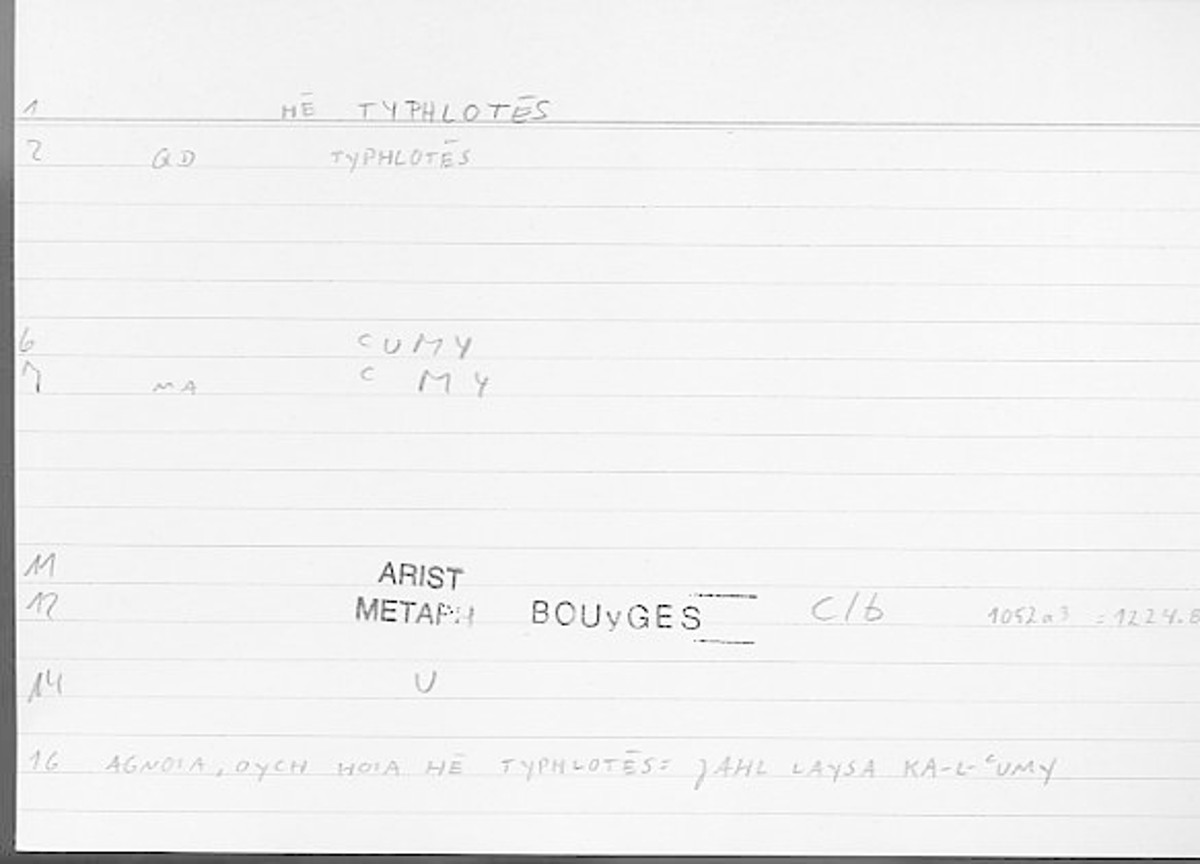 1 HĒ TYPHLOTĒS
2 QD TYPHLOTĒS
6 ᶜUMY
7 MA ᶜ MY
11 ARIST
12 METAPH BOUyGES C/b 1052a3 = 1224.8
14 U
16 AGNOIA, OYCH HOIA HĒ TYPHLOTĒS = JAHL LAYSA KA-L-ᶜUMY